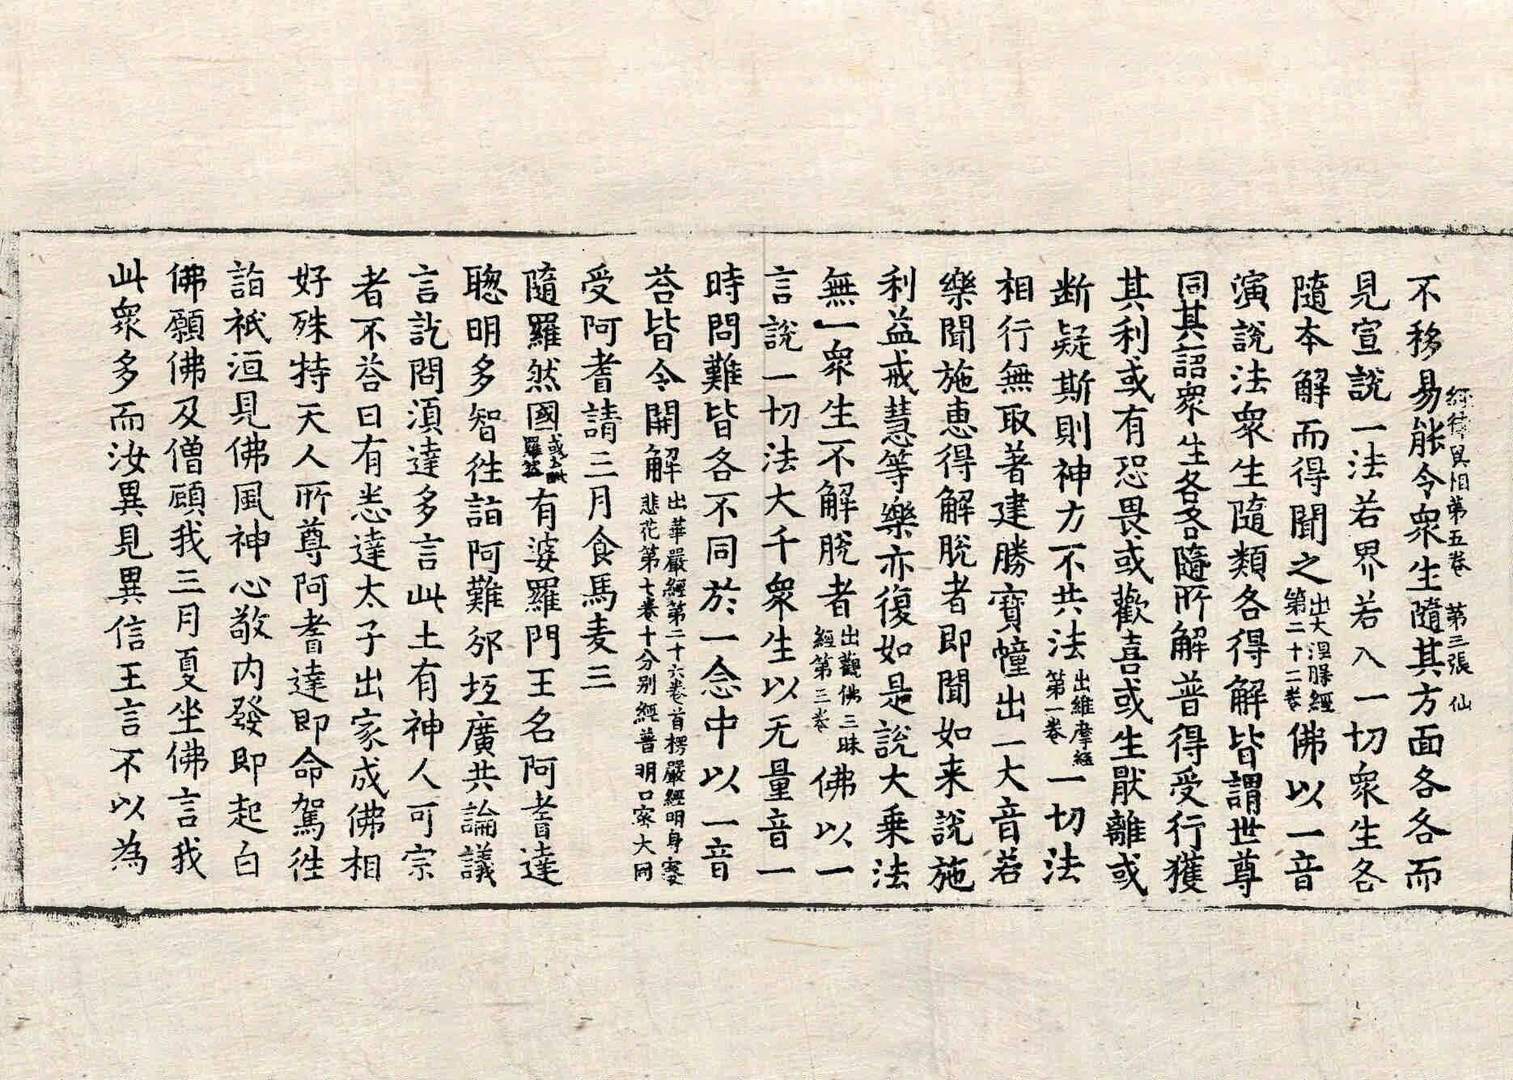 經律異相第五卷　第三張　仙
不移易能令衆生隨其方面各各而
見宣說一法若界若入一切衆生各
隨本解而得聞之出大涅槃經第二十二卷佛以一音
演說法衆生隨類各得解皆謂世尊
同其語衆生各各隨所解普得受行獲
其利或有恐畏或歡喜或生猒離或
断疑斯則神力不共法出維摩經第一卷一切法
相行無取著建勝寶幢出一大音若
樂聞施惠得解脫者即聞如来說施
利益戒慧等樂亦復如是說大乗法
無一衆生不解脫者出觀佛三昧經第三卷佛以一
言說一切法大千衆生以无量音一
時問難皆各不同於一念中以一音
荅皆令開解出華嚴經第二十六卷首楞嚴經明身密悲花第七卷十分别經普明口密大同
受阿耆請三月食馬麦三
隨羅然國或云毗羅然有婆羅門王名阿耆達
聦明多智徃詣阿難邠坻廣共論議
言訖問湏達多言此土有神人可宗
者不荅曰有悉達太子出家成佛相
好殊特天人所尊阿耆達即命駕徃
詣祇洹見佛風神心敬内發即起白
佛願佛及僧顧我三月夏坐佛言我
此衆多而汝異見異信王言不以為